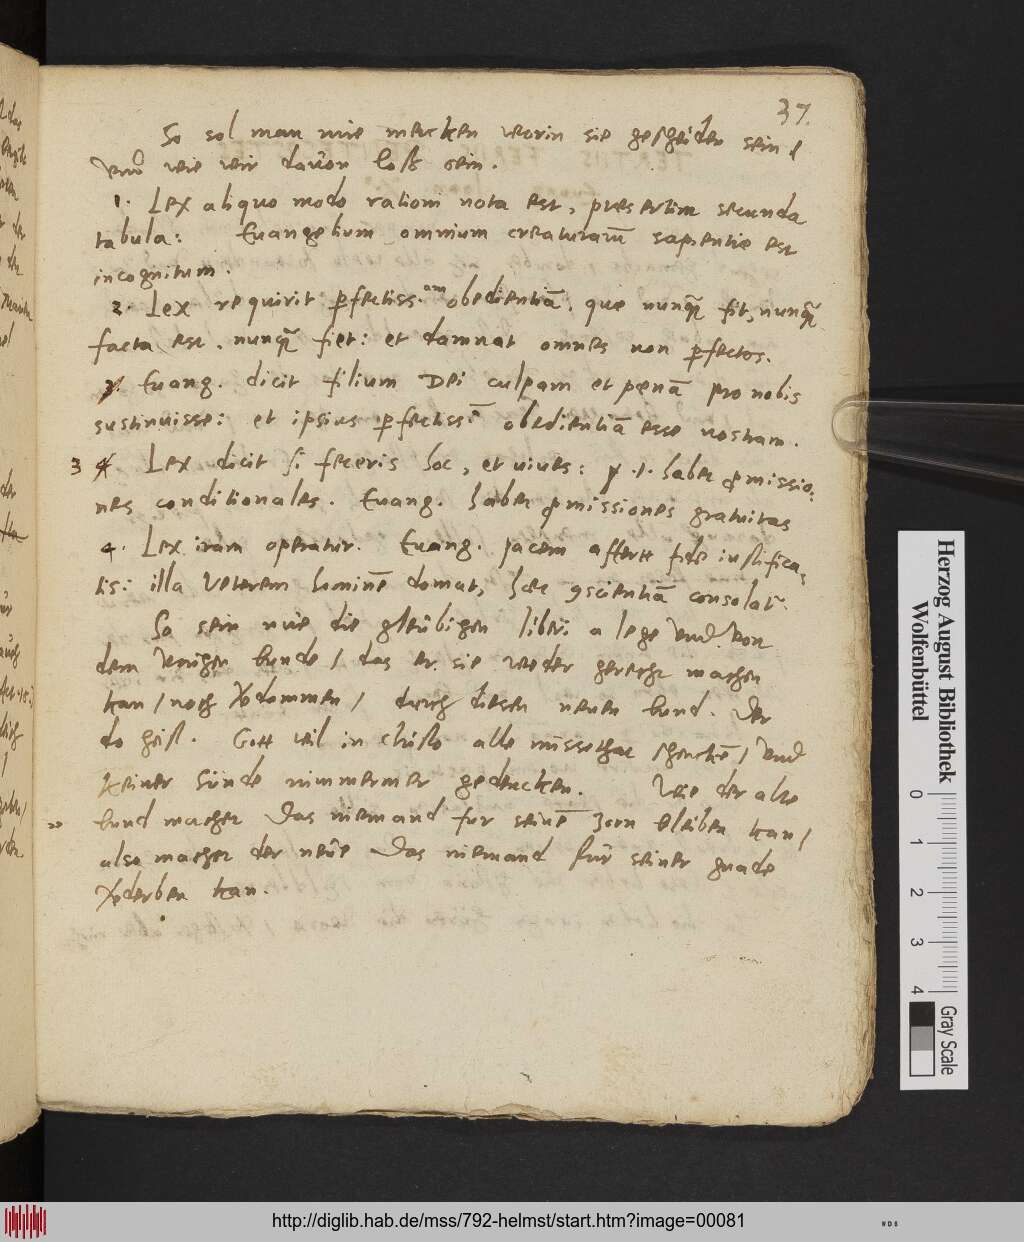 37.
So sol man nue mercken worin sie gescheiden sein /
vnd wie wir dauon loß sein.
1. Lex aliquo modo rationi nota est, presertim secunda
tabula: Euangelium omnium creaturarū sapientie est
incognitum.
2. Lex requirit ꝑfectiss.am obedientiā, que nunqꝫ fit, nunqꝫ
facta est, nunqꝫ fiet: et damnat omnes non ꝑfectos.
Euang. dicit filium Dei culpam et penā pro nobis
sustinuisse: et ipsius ꝑfectiss. obedientiā esse nostram.
3 Lex dicit si feceris hoc, et viues: .i. habet ꝓmissio:
nes conditionales. Euang. habet ꝓmissiones gratuitas
4. Lex iram operatur. Euang. pacem affert fide iustifica,
tis: illa veterem hominē domat, hec ꝯscientiā consolat.
So sein nue die gleubigen liberi a lege vnd von
dem vorigen bunde / das er sie weder gerecht machen
kan / noch v̄dommen / durch diesen neuen bund. Der
do heist. Gott wil in christo alle missethat schencke / vnd
keiner sünde nimmermer gedencken. Wie der alte
bund machet das niemand fur seinē zorn bleiben kan /
also machet der neue das niemand für seiner gnade
v̄derben kan.
Herzog August Bibliothek
Wolfenbüttel
0 1 2 3 4
Gray Scale
http://diglib.hab.de/mss/792-helmst/start.htm?image=00081